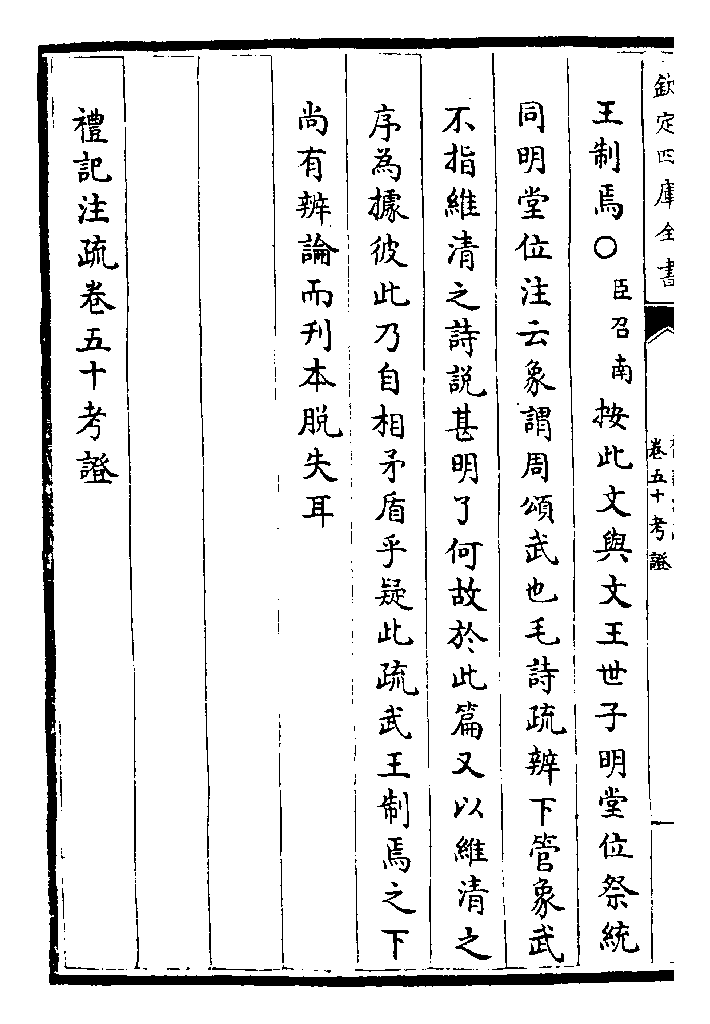 欽定四庫全書
卷五十考證
王制焉○臣召南按此文與文王世子明堂位祭統
同明堂位注云象謂周頌武也毛詩疏辨下管象武
不指維清之詩說甚明了何故於此篇又以維清之
序為據彼此乃自相矛盾乎疑此疏武王制焉之下
尚有辨論而刋本脫失耳
禮記注疏卷五十考證